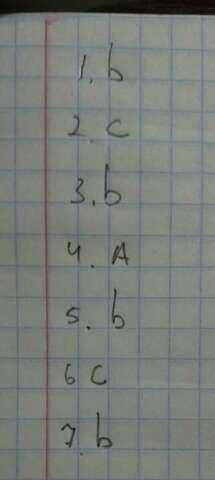 1. b
2. c
3. b
4. A
5. b
6 c
7. b